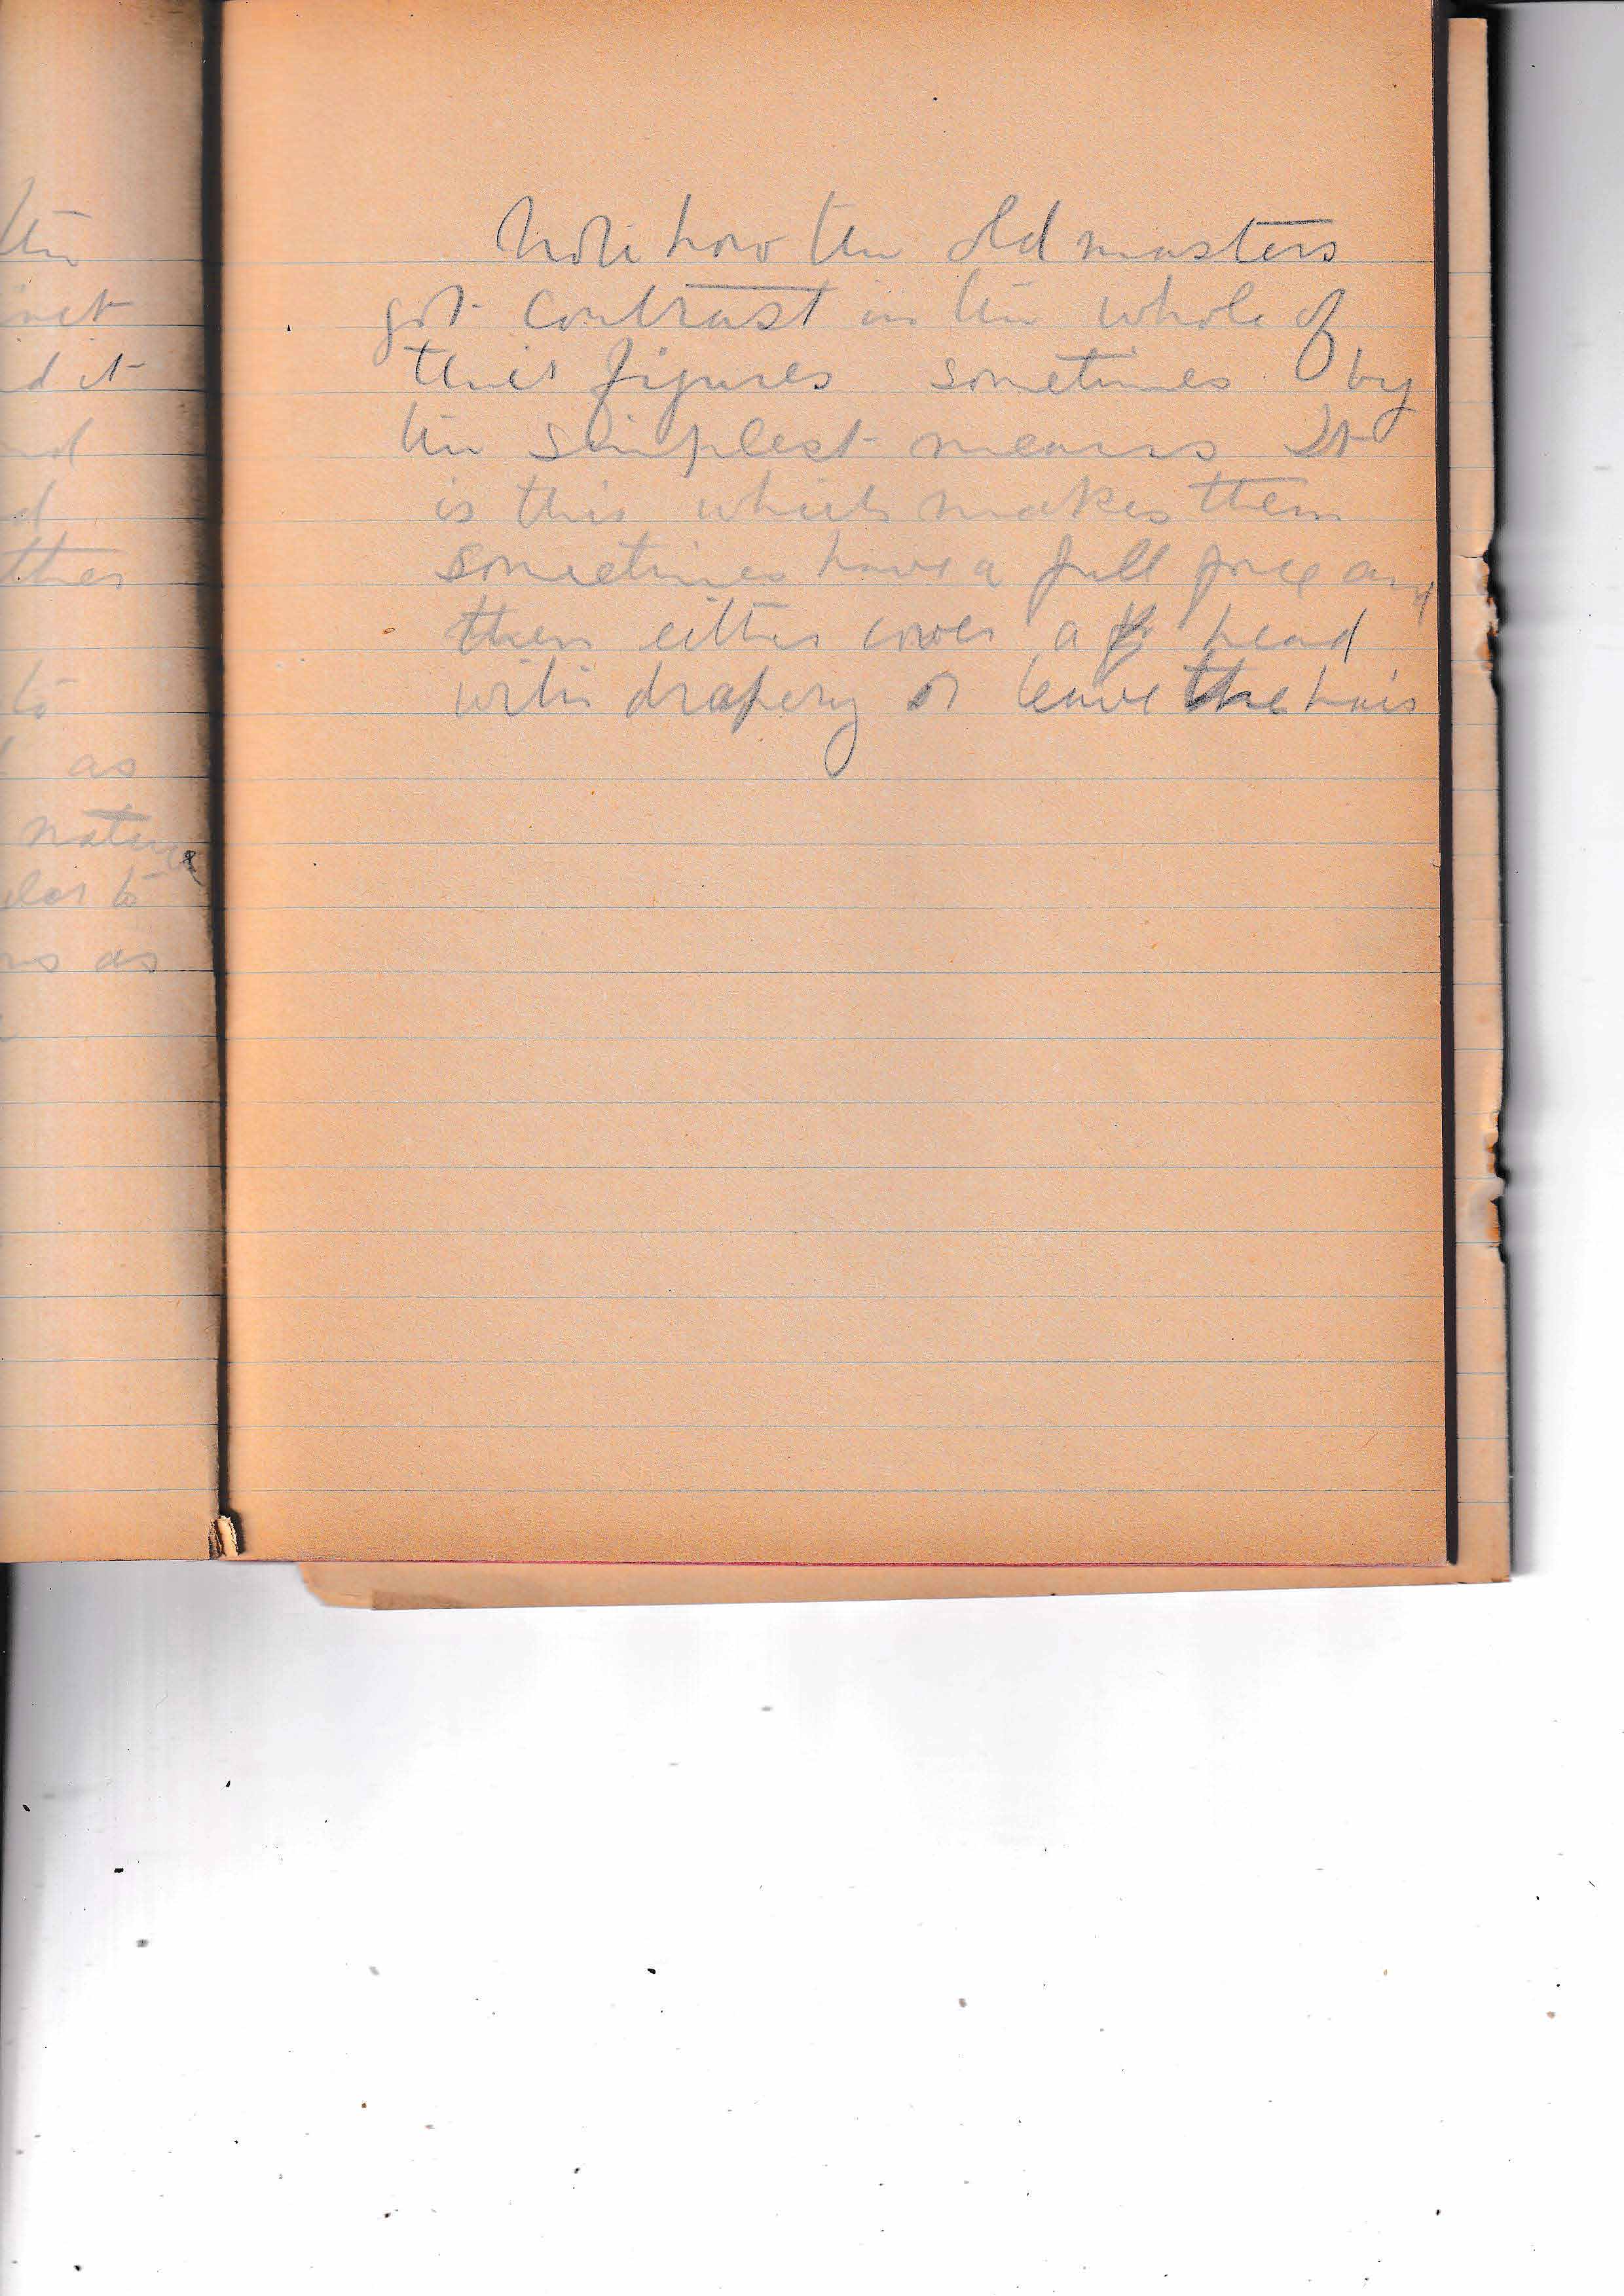 the
net
d it
nd
d
ther
to
as
nature
ular to
ns as
Note how the old masters
got contrast in the whole of
their figures sometimes by
the simplest means It
is this which makes them
sometimes have a full face and
then either cover a head
with drapery or leave the hair